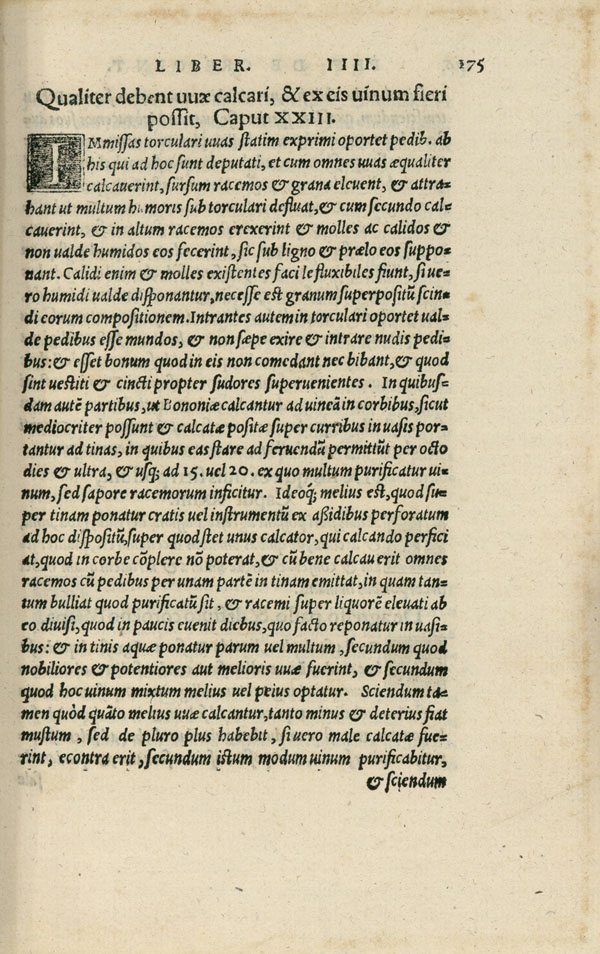 LIBER. IIII. 175
Qualiter debent uuæ calcari, & ex eis uinum fieri
possit, Caput XXIII.
IMmissas torculari uuas statim exprimi oportet pedib. ab
his qui ad hoc sunt deputati, et cum omnes uuas æqualiter
calcauerint, sursum racemos & grana eleuent, & attra-
hant ut multum humoris sub torculari defluat, & cum secundo cal-
cauerint, & in altum racemos erexerint & molles ac calidos &
non ualde humidos eos fecerint, sic sub ligno & prælo eos suppo-
nant. Calidi enim & molles existentes facile fluxibiles fiunt, si ue-
ro humidi ualde disponantur, necesse est granum superpositũ scin-
di eorum compositionem. Intrantes autem in torculari oportet ual-
de pedibus esse mundos, & non sæpe exire & intrare nudis pedi-
bus: & esset bonum quod in eis non comedant nec bibant, & quod
sint uestiti & cincti propter sudores superuenientes. In quibus-
dam autẽ partibus, ut Bononiæ calcantur ad uineã in corbibus, sicut
mediocriter possunt & calcatæ positæ super curribus in uasis por-
tantur ad tinas, in quibus eas stare ad feruendũ permittũt per octo
dies & ultra, & usq; ad 15. uel 20. ex quo multum purificatur ui-
num, sed sapore racemorum inficitur. Ideoq́; melius est, quod su-
per tinam ponatur cratis uel instrumentũ ex aßidibus perforatum
ad hoc dispositũ, super quod stet unus calcator, qui calcando perfici
at, quod in corbe cõplere nõ poterat, & cũ bene calcauerit omnes
racemos cũ pedibus per unam partẽ in tinam emittat, in quam tan-
tum bulliat quod purificatũ sit, & racemi super liquorẽ eleuati ab
eo diuisi, quod in paucis euenit diebus, quo facto reponatur in uasi-
bus: & in tinis aquæ ponatur parum uel multum, secundum quod
nobiliores & potentiores aut melioris uuæ fuerint, & secundum
quod hoc uinum mixtum melius uel peius optatur. Sciendum ta-
men quòd quãto melius uuæ calcantur, tanto minus & deterius fiat
mustum, sed de pluro plus habebit, si uero male calcatæ fue-
rint, econtra erit, secundum istum modum uinum purificabitur,
& sciendum